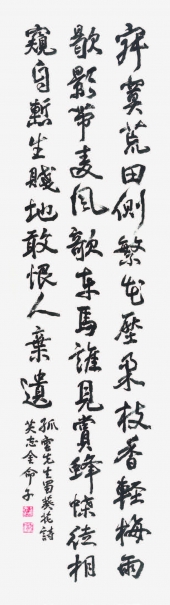 寂寞荒田側繁花壓柔枝香輕梅雨
歇影帶麥風欹車馬誰見賞蜂蝶徒相
窺自慙生賤地敢恨人棄遺
孤雲先生蜀葵花詩
金命子